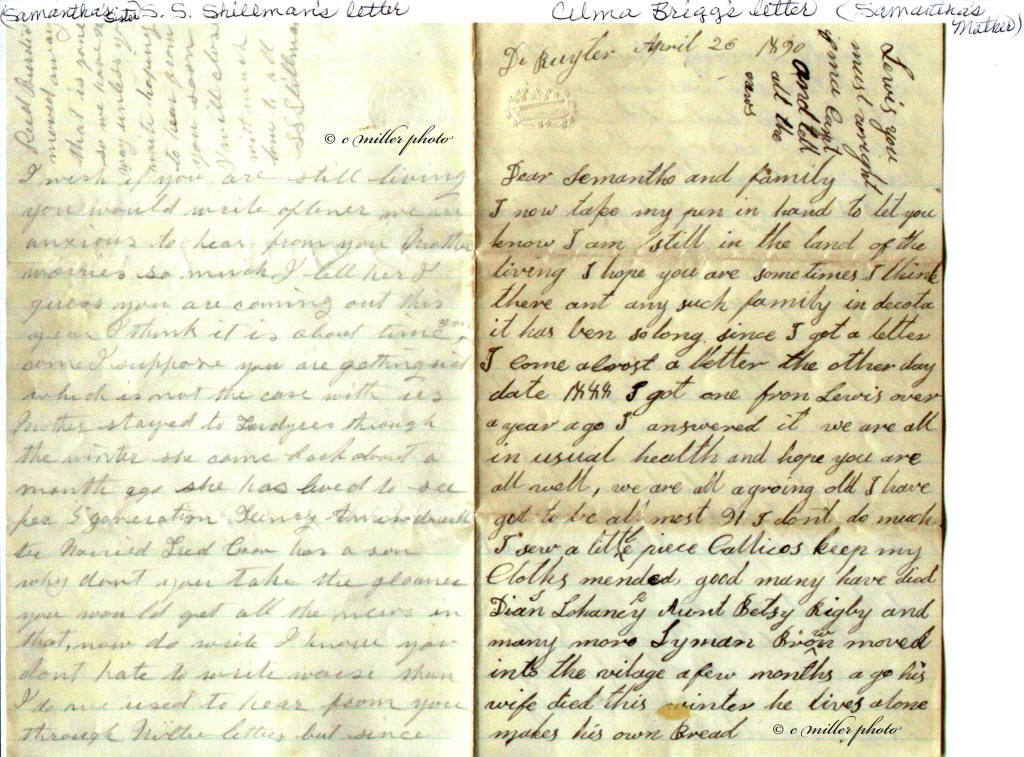 (Samantha's Sister) S. S. Shillman's letter
Alma Brigg's letter (Samantha's Mother)
© c miller photo
moved away
that is gone
so we have no
way unless you
write hoping
to hear from
you soon
I will close
with much
love to all
S S Shillman
I wish if you are still living
you would write oftener we are
anxious to hear from you Mother
worries so much I tell her I
guess you are coming out this
year I think it is about time you
come I suppose you are getting rich
which is not the case with us
Mother stayed to through
the winter she came back about a
month ago she has lived to see
her 5 generation Henry
has a son
why dont you take the gleaner
you would get all the news in
that, now do write I know you
dont hate to write worse than
I do we used to hear from you
through Nettie letters but since
De Ruyter April 26 1890
Lewis you
must wright
if ma cant
and tell
all the
news
Dear Semantho and family
I now take my pen in hand to let you
know I am still in the land of the
living I hope you are some times I think
there ant any such family in decota
it has ben so long since I got a letter
I come across a letter the other day
date 1888 I got one fron Lewis over
a year ago I answered it we are all
in usual health and hope you are
all well, we are all agroing old I have
got to be all most 91 I dont do much
I sew a little piece Callicos keep my
Cloths mended, good many have died
Dian Aunt Betsy Rigby and
many more Lyman Brown moved
into the vilage a few months a go his
wife died this winter he lives alone
makes his own Bread
© c miller photo